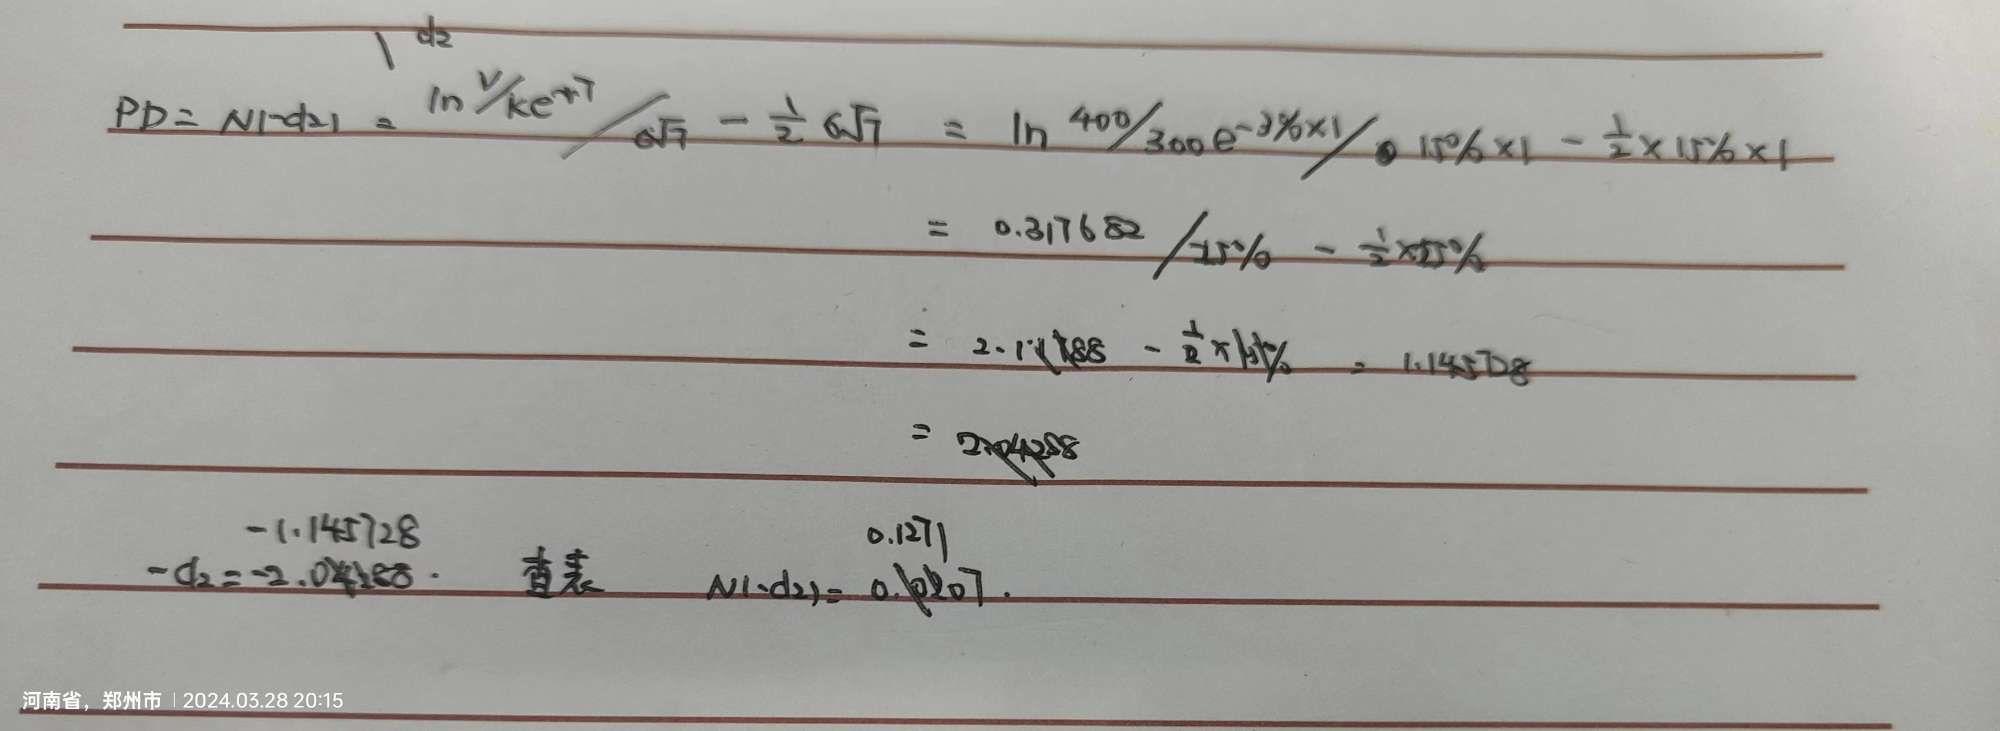 d2
PD = N(-d2) = ln V/ke-rT / σ√T - 1/2 σ√T = ln 400/300e-3%×1 / 15%×1 - 1/2 × 15% × 1
= 0.317682 / 25% - 1/2 × 25%
= - 1/2 × = 1.145728
=
-1.145728
-d2 = 查表 0.1271
N(-d2) =
河南省，郑州市 | 2024.03.28 20:15